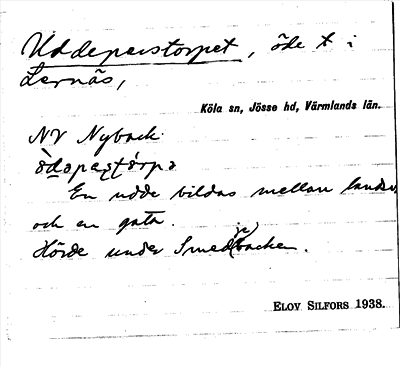 Uddeperstorpet, öde t i
Lernäs,
Köla sn, Jösse hd, Värmlands län.
NV Nyback.
En udde bildas mellan landsv.
och en gata.
Hörde under Smedjebacken.
ELOV SILFORS 1938.